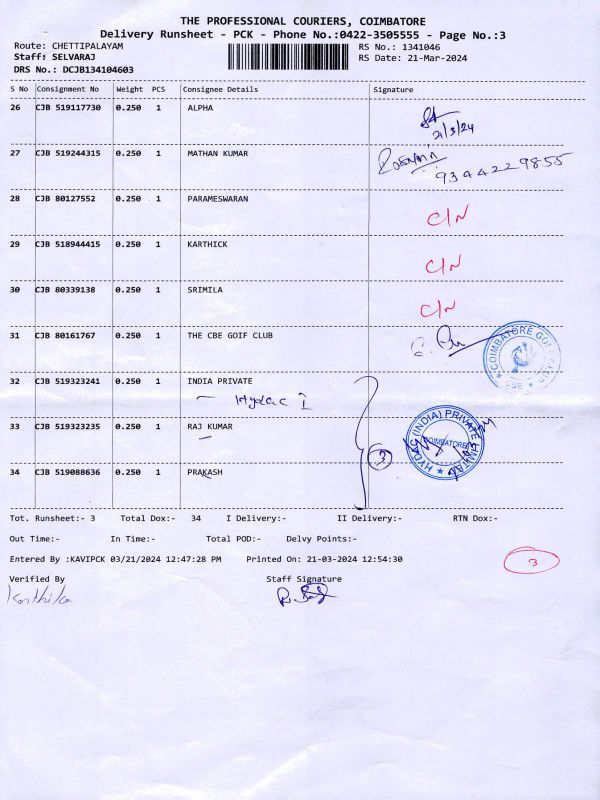 THE PROFESSIONAL COURIERS, COIMBATORE
Delivery Runsheet - PCK - Phone No.:0422-3505555 - Page No.:3
Route: CHETTIPALAYAM RS No.: 1341046
Staff: SELVARAJ RS Date: 21-Mar-2024
DRS No.: DCJB134104603
S No Consignment No Weight PCS Consignee Details Signature
26 CJB 519117730 0.250 1 ALPHA
21/3/24
27 CJB 519244315 0.250 1 MATHAN KUMAR
9344229855
28 CJB 80127552 0.250 1 PARAMESWARAN C/N
29 CJB 518944415 0.250 1 KARTHICK C/N
30 CJB 80339138 0.250 1 SRIMILA C/N
31 CJB 80161767 0.250 1 THE CBE GOIF CLUB
COIMBATORE GOLF CLUB
32 CJB 519323241 0.250 1 INDIA PRIVATE
Hydac I
33 CJB 519323235 0.250 1 RAJ KUMAR
HYDAC (INDIA) PRIVATE LIMITED
COIMBATORE
3
34 CJB 519088636 0.250 1 PRAKASH
Tot. Runsheet:- 3 Total Dox:- 34 I Delivery:- II Delivery:- RTN Dox:-
Out Time:- In Time:- Total POD:- Delvy Points:-
Entered By :KAVIPCK 03/21/2024 12:47:28 PM Printed On: 21-03-2024 12:54:30
3
Verified By Staff Signature
Karthika